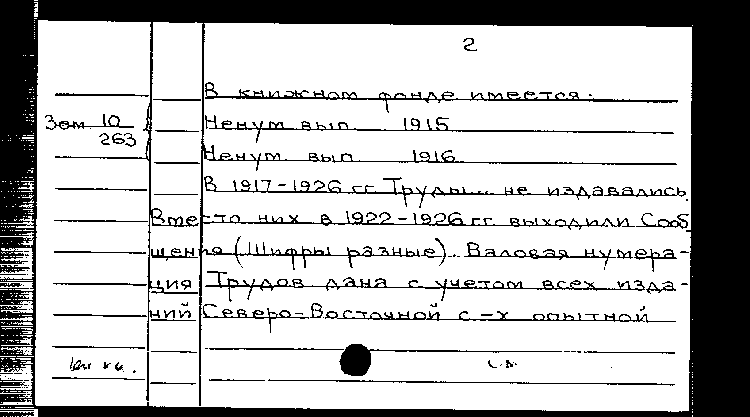 2
В книжном фонде имеется:
Зем 10/263
Ненум вып 1915
Ненум. вып 1916
В 1917-1926 гг Труды... не издавались.
Вместо них в 1922-1926 гг. выходили Сооб
щения (Шифры разные). Валовая нумера-
ция Трудов дана с учетом всех изда-
ний Северо-Восточной с-х опытной